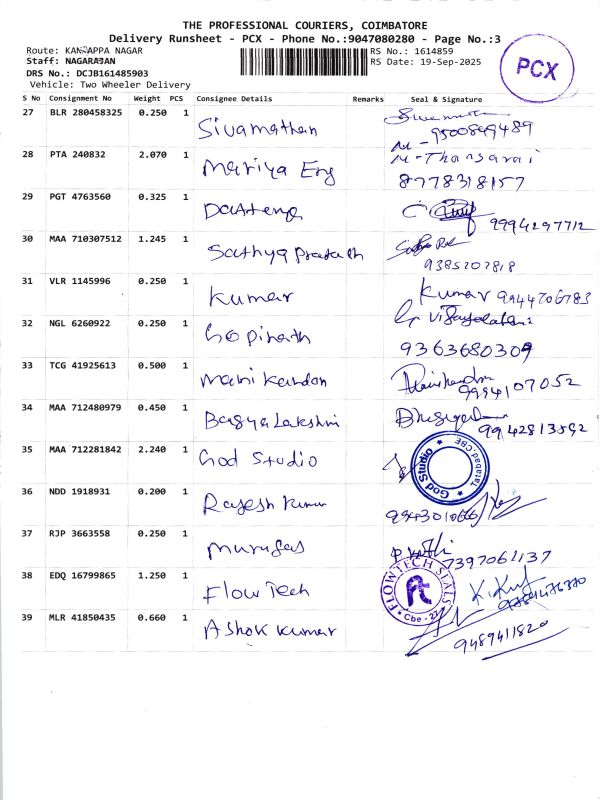 THE PROFESSIONAL COURIERS, COIMBATORE
Delivery Runsheet - PCX - Phone No.:9047080280 - Page No.:3
Route: KANNAPPA NAGAR RS No.: 1614859
Staff: NAGARAJAN RS Date: 19-Sep-2025
DRS No.: DCJB161485903
Vehicle: Two Wheeler Delivery
PCX
S No Consignment No Weight PCS Consignee Details Remarks Seal & Signature
27 BLR 280458325 0.250 1 Sivamathan
28 PTA 240832 2.070 1 Mariya Eng
8778318157
29 PGT 4763560 0.325 1
9994297712
30 MAA 710307512 1.245 1 Sathya Prakash
9385207818
31 VLR 1145996 0.250 1 Kumar Kumar 9944706783
32 NGL 6260922 0.250 1 Gopinath
9363680309
33 TCG 41925613 0.500 1 Manikandan
9994107052
34 MAA 712480979 0.450 1 Bagya Lakshmi
9942813592
35 MAA 712281842 2.240 1 God Studio God Studio Tatabad CBE
36 NDD 1918931 0.200 1 Rajesh Kumar
37 RJP 3663558 0.250 1 Murugas
7397061137
38 EDQ 16799865 1.250 1 Flow Tech FLOWTECH SEALS Cbe - 27
39 MLR 41850435 0.660 1 Ashok Kumar
9489411820